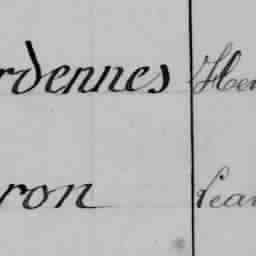 rdennes Hen
ron Lean